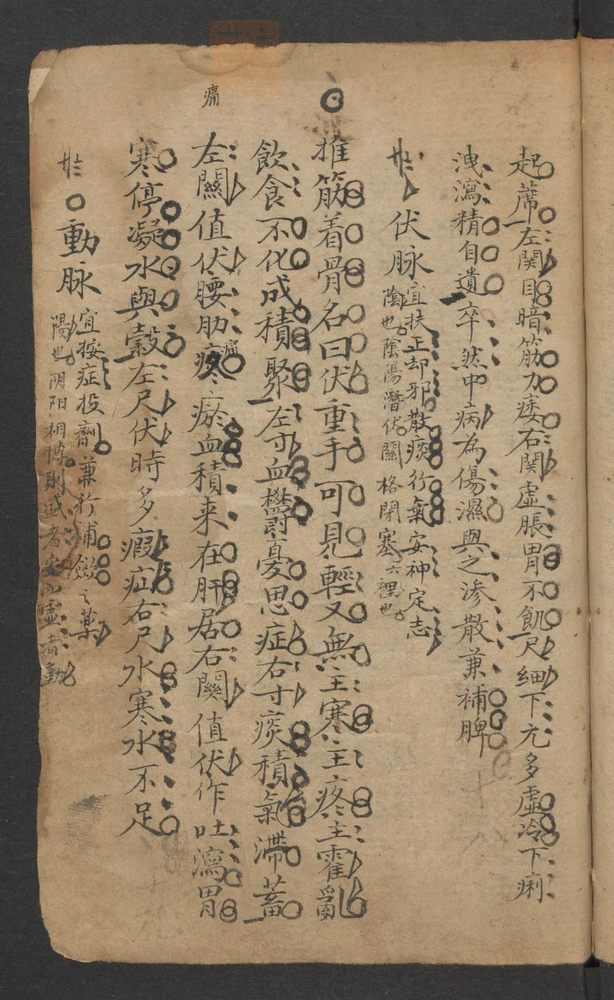 起蓆左関目暗筋力痿右関虛脹胃不飢尺細下元多虛冷下痢
洩瀉精自遺卒然中病為傷濕與之滲散兼補脾
卄一伏脉
宜扶正却邪散痰行氣安神定志
陰也陰陽潛伏關格閉塞六裡也
推筋着骨名曰伏重手可見輕又無主寒主疼主霍亂
飲食不化成積聚左寸血欝憂思症右寸痰積氣滯蓄
左關值伏腰肋疼瘀血積来在肝居右關值伏作吐瀉胃
痛
痛
寒停凝水與穀左尺伏時多瘕疝右尺水寒水不足
卄二動脉
宜按症投劑兼行補斂之藥
陽也阴阳相搏則 者安 虛者動